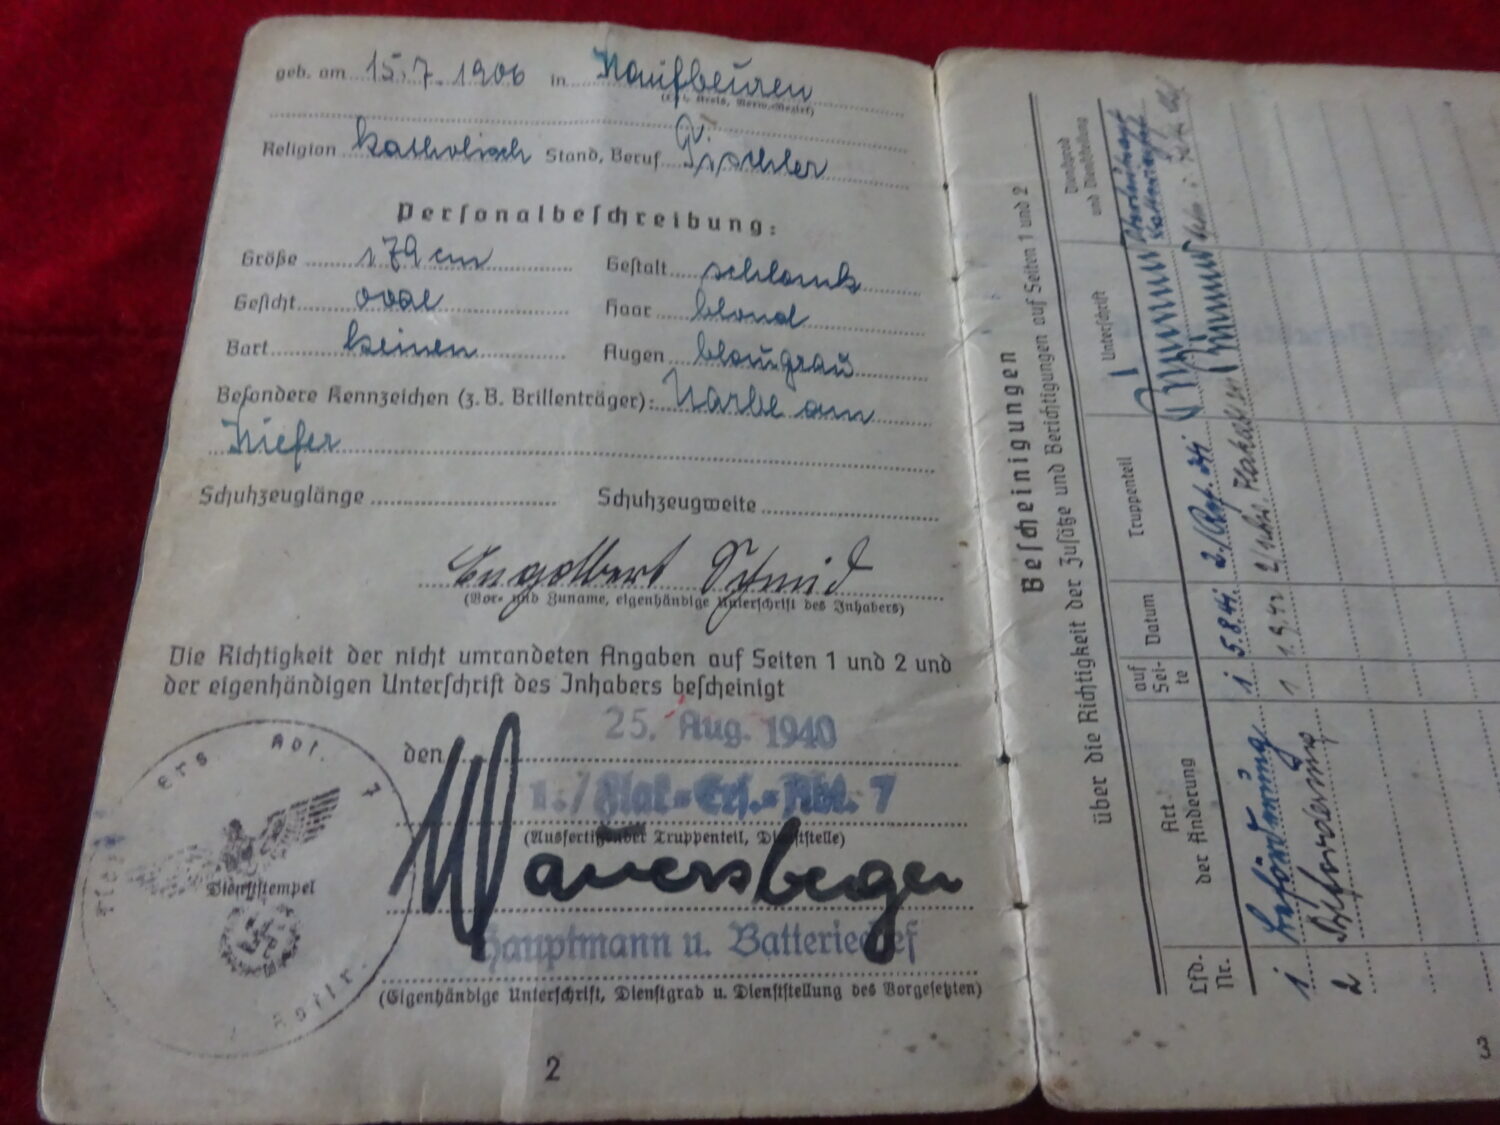 geb. am 15.7.1906 in Kaufbeuren
(Ort, Kreis, Verw.-Bezirk)
Religion katholisch Stand, Beruf
Personalbeschreibung:
Größe 179 cm Gestalt schlank
Gesicht oval Haar blond
Bart keinen Augen blaugrau
Besondere Kennzeichen (z. B. Brillenträger): Narbe am
Kiefer
Schuhzeuglänge Schuhzeugweite
Engelbert Schmid
(Vor- und Zuname, eigenhändige Unterschrift des Inhabers)
Die Richtigkeit der nicht umrandeten Angaben auf Seiten 1 und 2 und
der eigenhändigen Unterschrift des Inhabers bescheinigt
den 25. Aug. 1940
1./Flak-Ers.-Abt. 7
(Ausfertigender Truppenteil, Dienststelle)
Ers. Abt. 7
Dienststempel
Battr.
Hauptmann u. Batteriechef
(Eigenhändige Unterschrift, Dienstgrad u. Dienststellung des Vorgesetzten)
2
Bescheinigungen
über die Richtigkeit der Zusätze und Berichtigungen auf Seiten 1 und 2
Lfd. Nr.
Art der Änderung
auf Sei-te
Datum
Truppenteil
Unterschrift
Dienstgrad und Dienststellung
1 Beförderung 1 5.8.41
2 Beförderung 1 1.9.42
3